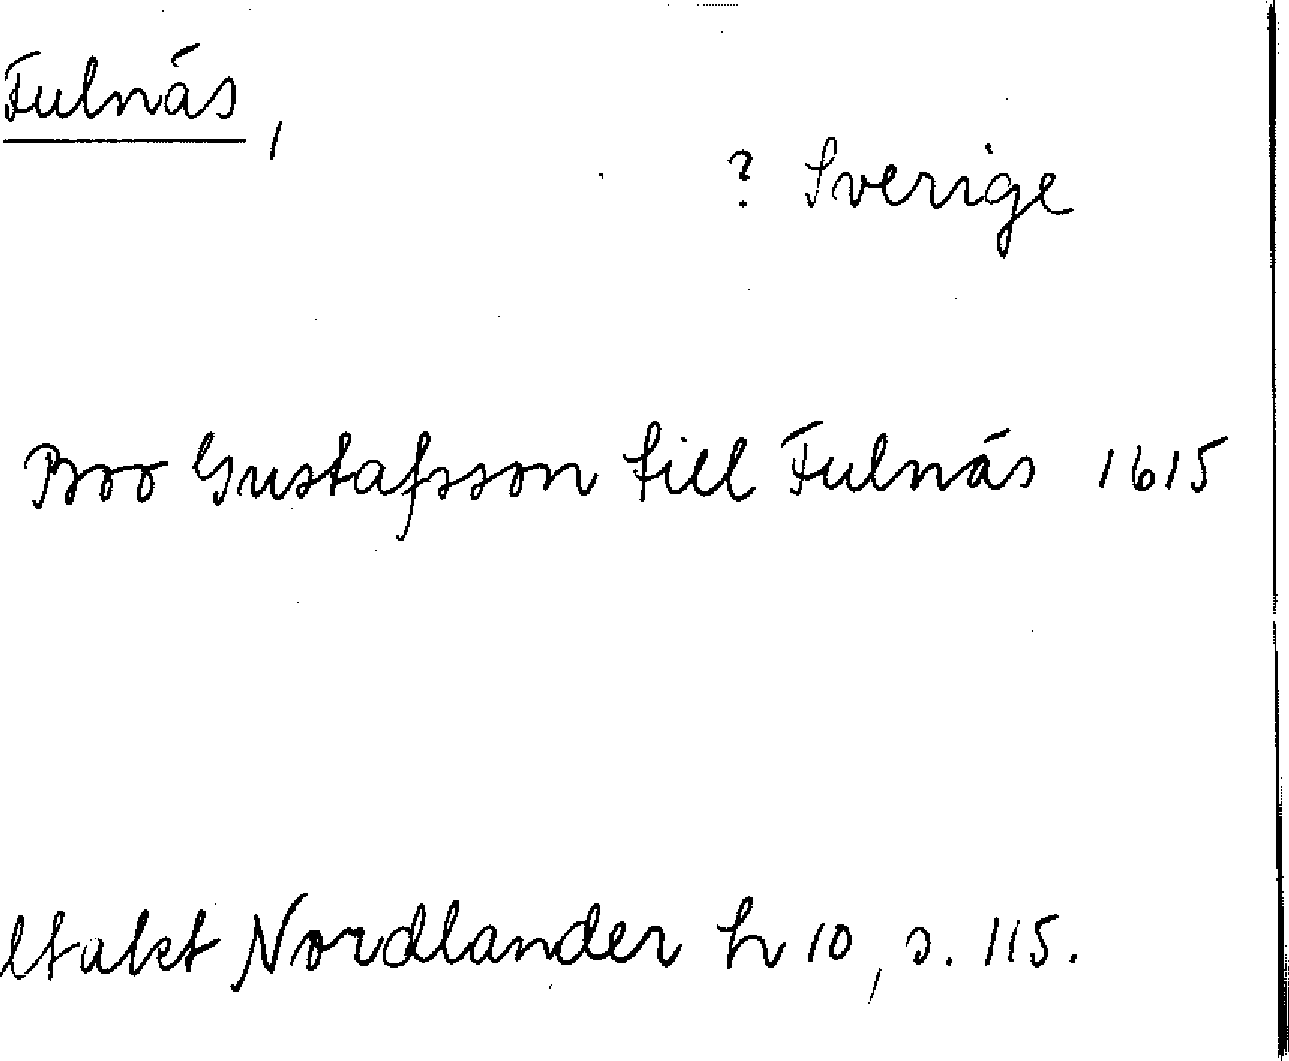 Fulnäs,
? Sverige
Boo Gustafsson till Fulnäs 1615
Nordlander h 10, s. 115.